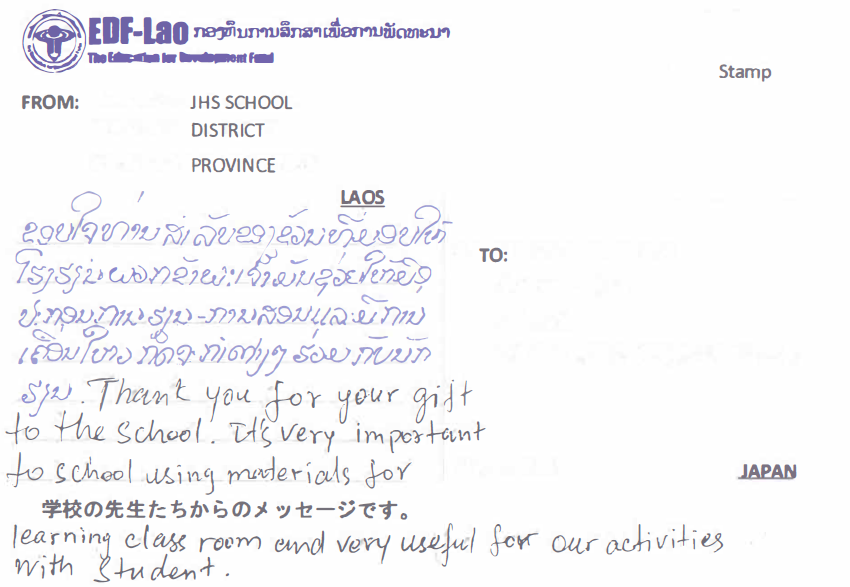 EDF-Lao ກອງທຶນການສຶກສາເພື່ອການພັດທະນາ
The Education for Development Fund
Stamp
FROM: JHS SCHOOL
DISTRICT
PROVINCE
LAOS
ຂອບໃຈທ່ານສຳລັບຂອງຂວັນທີ່ມອບໃຫ້
ໂຮງຮຽນພວກຂ້າພະເຈົ້າມັນຊ່ວຍໃຫ້ມີອຸ
ປະກອນການຮຽນ-ການສອນແລະມີການ
ເຄື່ອນໄຫວກິດຈະກຳຕ່າງໆຮ່ວມກັບນັກ
ຮຽນ. Thank you for your gift
to the school. It's very important
to school using materials for
TO:
JAPAN
学校の先生たちからのメッセージです。
learning class room and very useful for our activities
with student.